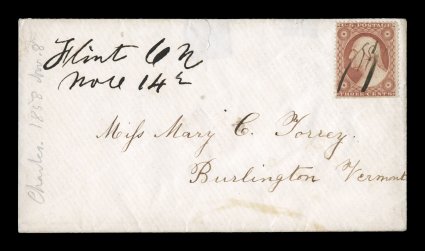 Flint C N
Nov 14
U.S. POSTAGE
THREE CENTS
Miss Mary C. Torrey.
Burlington Vermont
Charles. 1858 Nov. 8